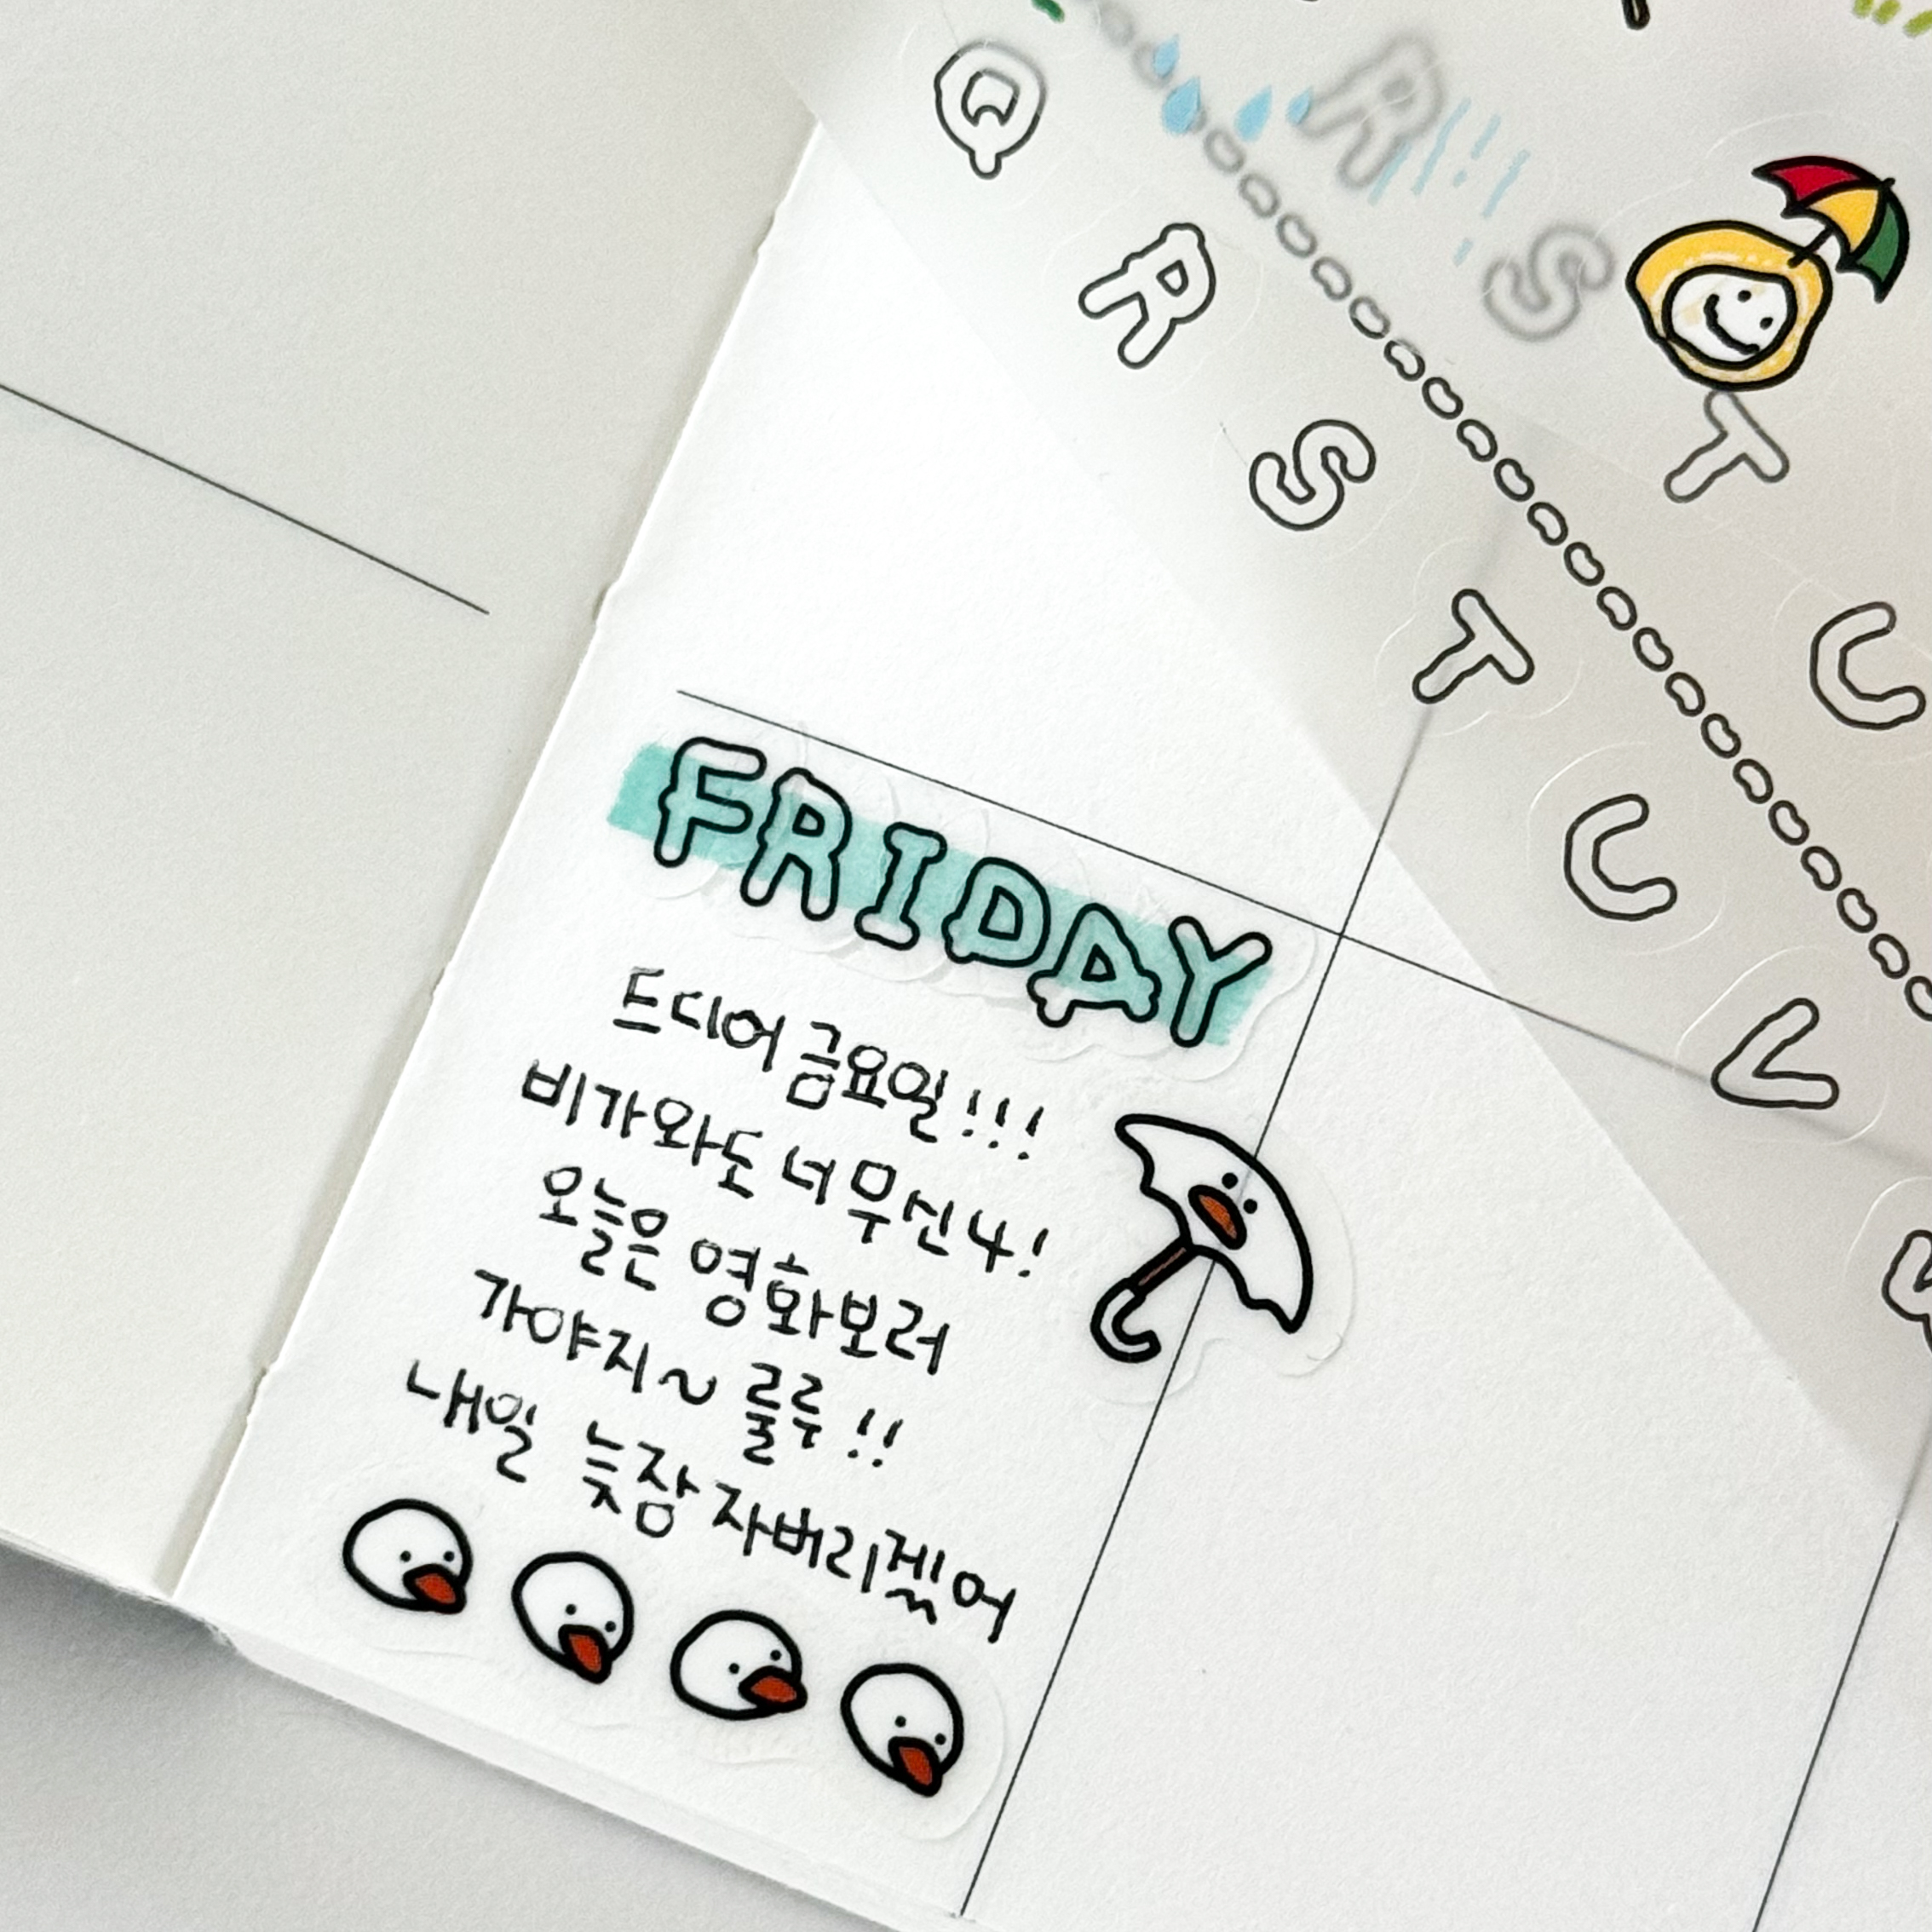 Q
R
S
T
C
L
R
S
T
C
FRIDAY
드디어 금요일!!!
비가와도 너무신나!
오늘은 영화보러
가야지~ 룰루!!
내일 늦잠 자버리겠어